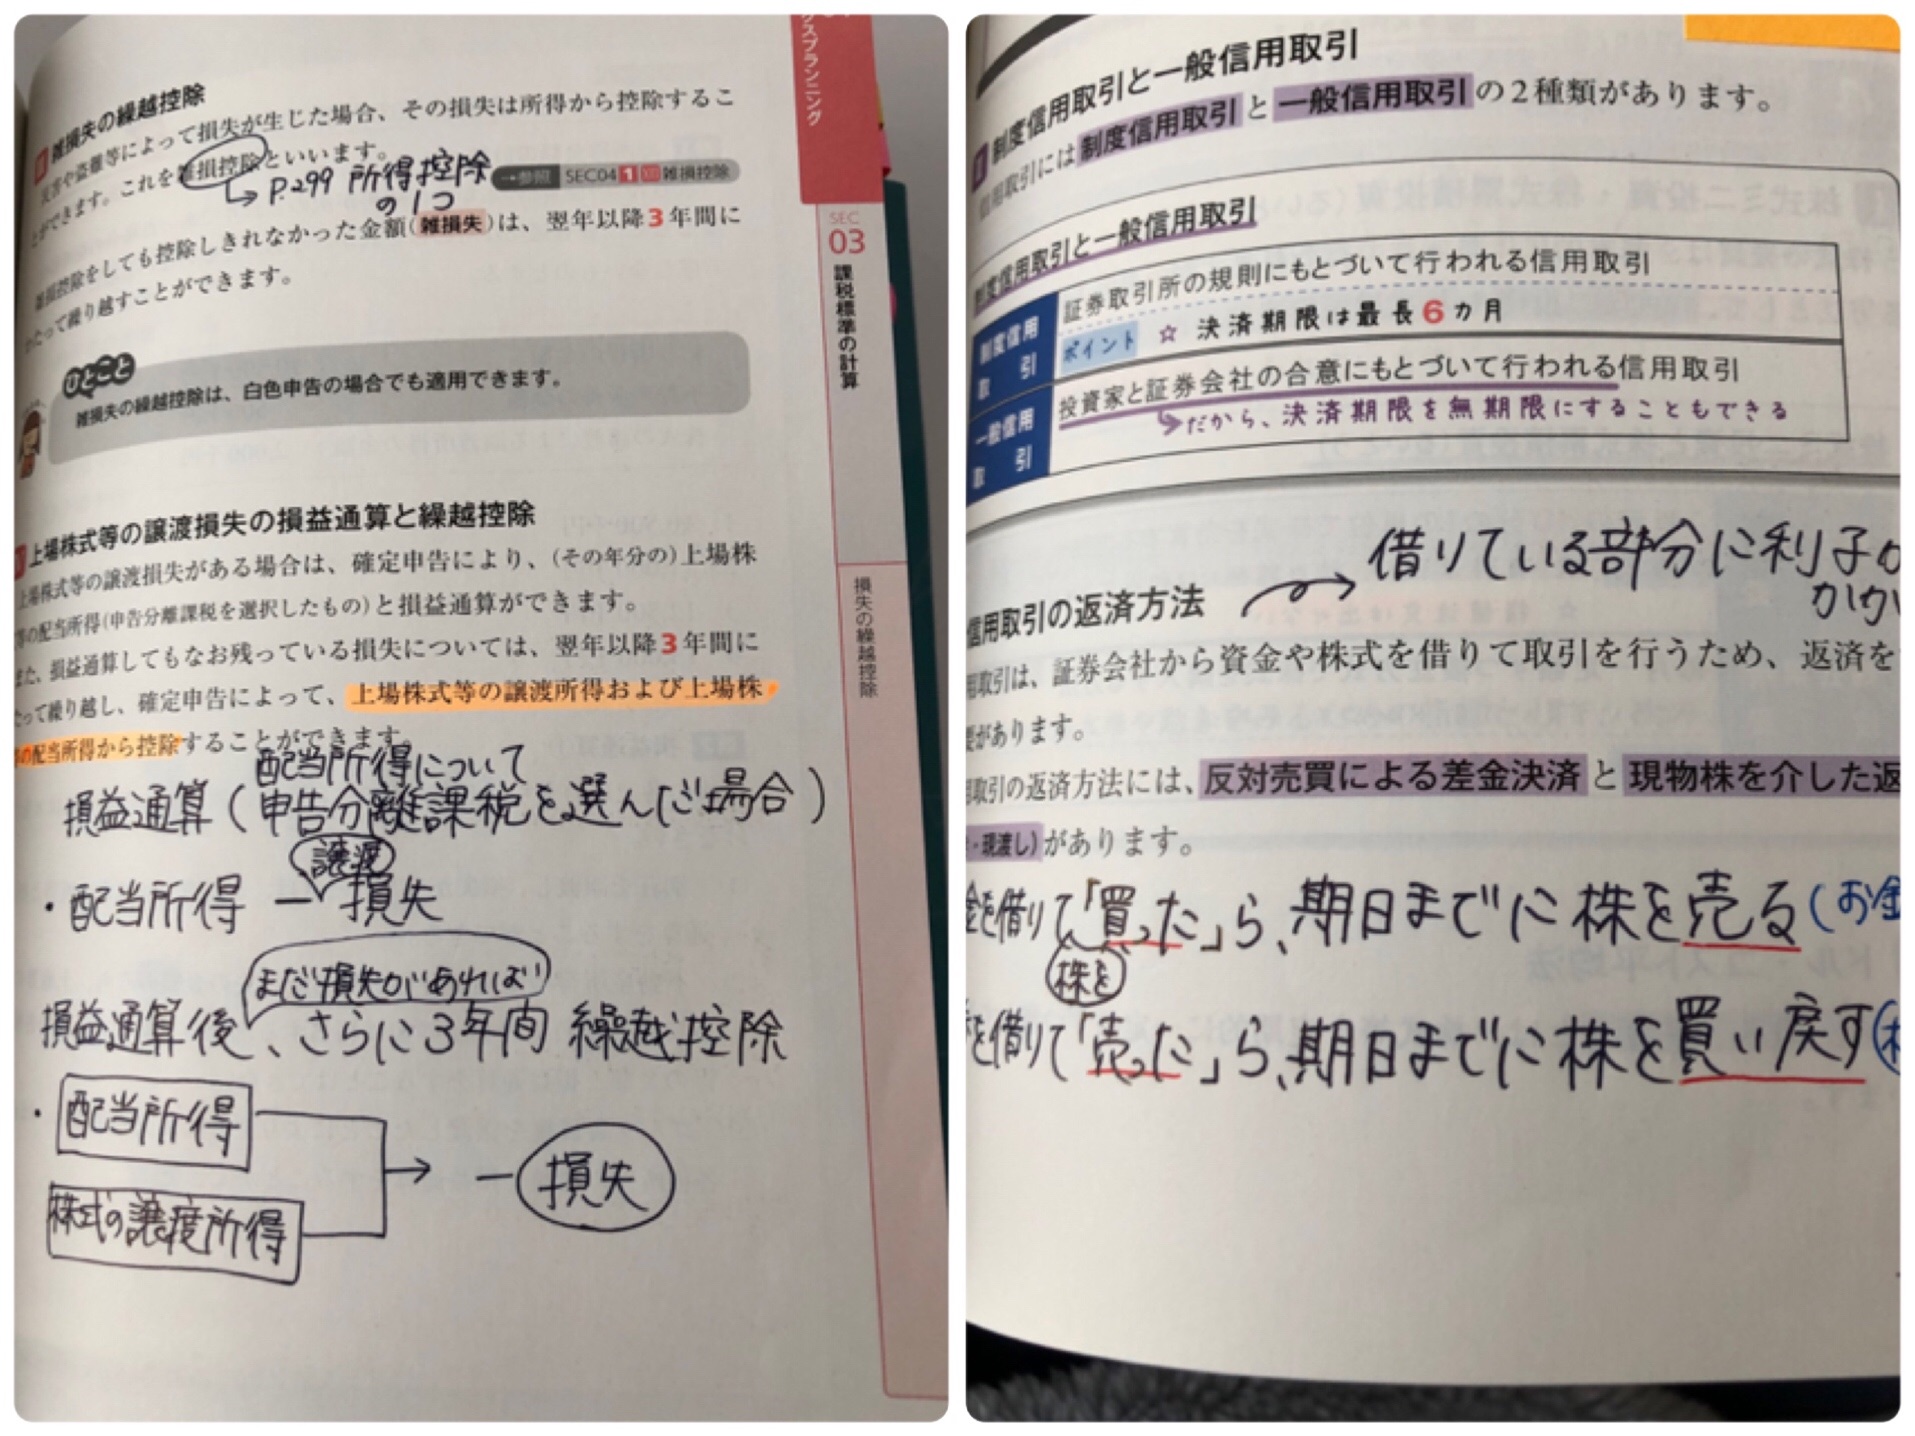 雑損失の繰越控除
災害や盗難等によって損失が生じた場合、その損失は所得から控除するこ
とができます。これを雑損控除といいます。
→P.299 所得控除
の1つ
→参照 SEC04 1 雑損控除
雑損控除をしても控除しきれなかった金額(雑損失)は、翌年以降3年間に
たって繰り越すことができます。
ひとこと
雑損失の繰越控除は、白色申告の場合でも適用できます。
上場株式等の譲渡損失の損益通算と繰越控除
上場株式等の譲渡損失がある場合は、確定申告により、(その年分の)上場株
等の配当所得(申告分離課税を選択したもの)と損益通算ができます。
また、損益通算してもなお残っている損失については、翌年以降3年間に
たって繰り越し、確定申告によって、上場株式等の譲渡所得および上場株
の配当所得から控除することができます。
配当所得について
損益通算(申告分離課税を選んだ場合)
譲渡
・配当所得 ー 損失
まだ損失があれば
損益通算後、さらに3年間 繰越控除
・配当所得
株式の譲度所得
→ ー損失
スプランニング
SEC
03
課税標準の計算
損失の繰越控除
制度信用取引と一般信用取引
信用取引には制度信用取引と一般信用取引の2種類があります。
制度信用取引と一般信用取引
制度信用
取 引
証券取引所の規則にもとづいて行われる信用取引
ポイント ☆ 決済期限は最長6カ月
一般信用
取 引
投資家と証券会社の合意にもとづいて行われる信用取引
→だから、決済期限を無期限にすることもできる
信用取引の返済方法
→借りている部分に利子が
かか
用取引は、証券会社から資金や株式を借りて取引を行うため、返済を
要があります。
用取引の返済方法には、反対売買による差金決済と現物株を介した返
・現渡し)があります。
金を借りて「買った」ら、期日までに株を売る(お金
株を
を借りて「売った」ら、期日までに株を買い戻す(株